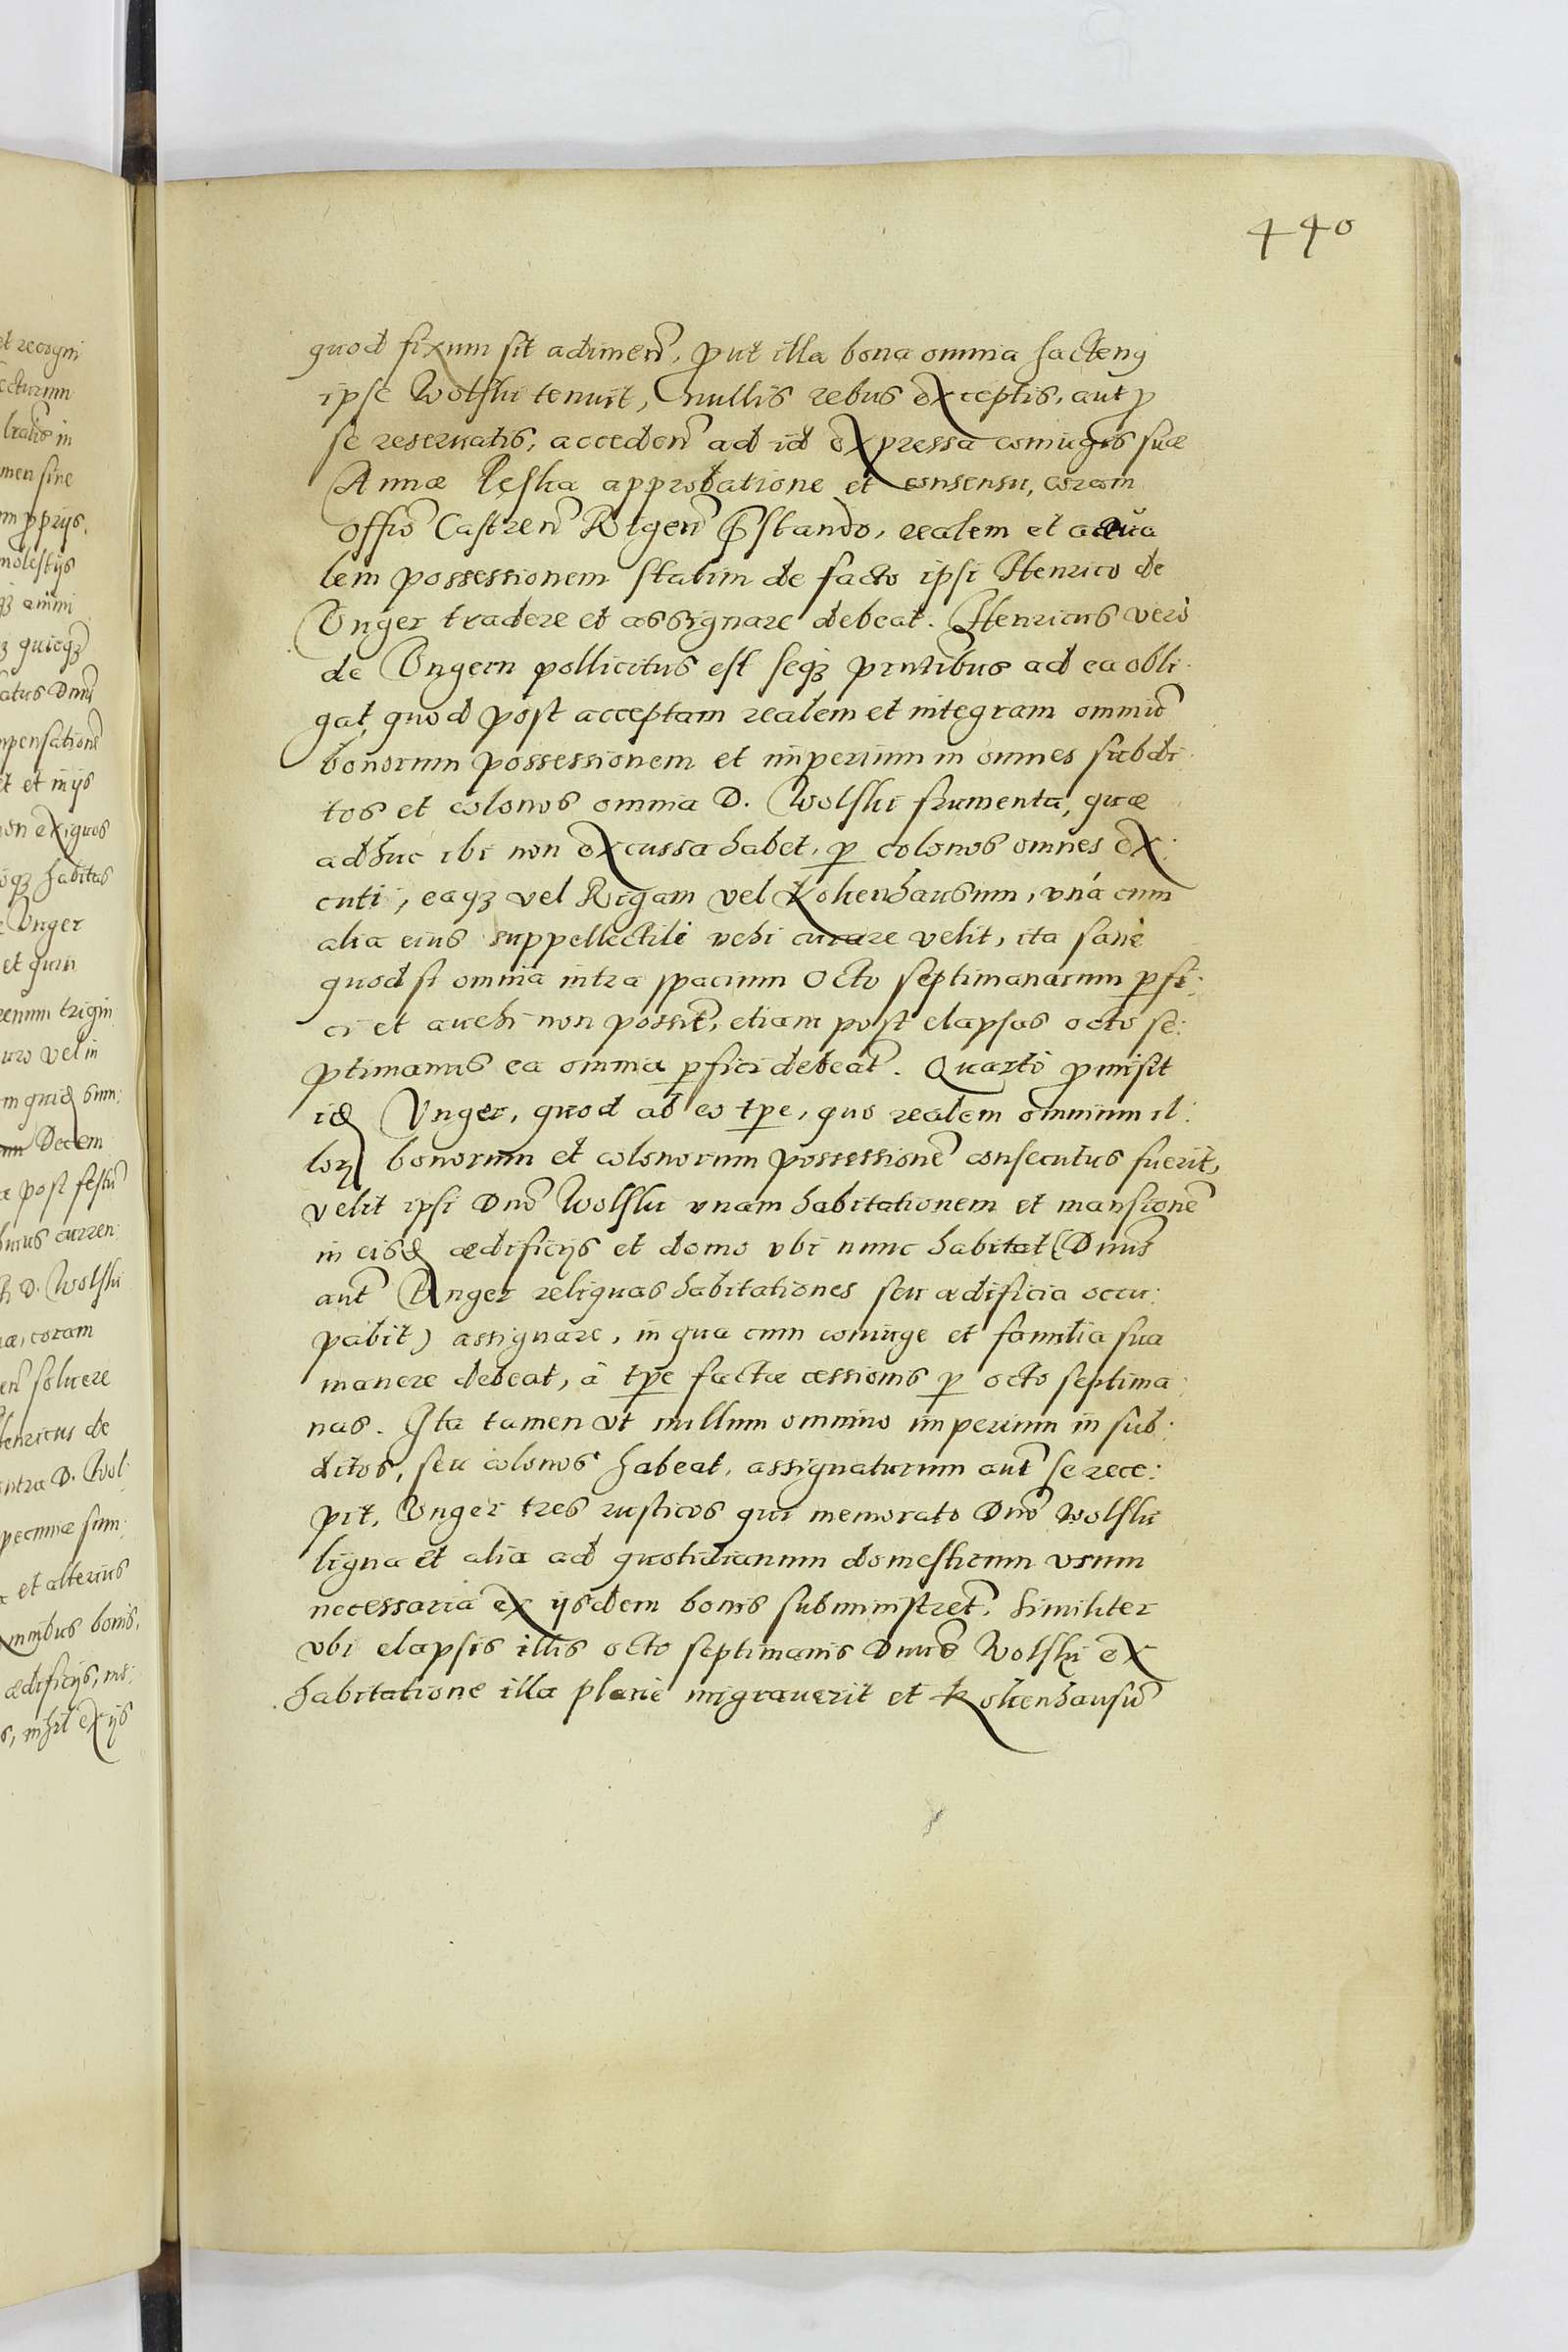 440
quod fixum sit adimen̄, prout illa bona omnia hactenꝰ
ipse Wolski tenuit, nullis rebus exceptis, aut ꝓ
se reseruatis, acceden̄ ad id expressa coniugis suæ
Annæ Ręska approbatione et consensu, coram
offio Castren̄ Rigen̄ ꝓstando, realem et actua
lem possessionem statim de facto ipsi Henrico de
Vnger tradere et assignare debeat. Henricus verò
de Vngern pollicitus est seqꝫ prntibus ad ea obli:
gat, quod post acceptam realem et integram omniū
bonorum possessionem et imperium in omnes subdi:
tos et colonos omnia D. Wolski frumenta, quæ
adhuc ibi non excussa habet, ꝑ colonos omnes ex:
cuti, eaqꝫ vel Rigam vel Kokenhausum, vná cum
alia eius suppellectili vehi curare velit, ita sanè
quod si omnia intra spacium octo septimanarum ꝑfi:
ci et auehi non possīt, etiam post elapsas octo se:
ptimanas ea omnia ꝑfici debeāt. Quartò ꝓmisit
idē Vnger, quod ab eo tp̄e, quo realem omnium il:
lorꝝ bonorum et colonorum possessionē consecutus fuerit,
velit ipsi Dn̄o Wolski vnam habitationem et mansionē
in eisdē ædificijs et domo vbi nunc habitat (Dnūs
aūt Vnger reliquas habitationes seu ædificia occu:
pabit) assignare, in qua cum coniuge et familia sua
manere debeat, à tp̄e factæ cessionis ꝑ octo septima:
nas. Ita tamen vt nullum omnino imperium in sub:
ditos, seu colonos habeat, assignaturum aūt se rece:
pit, Vnger tres rusticos qui memorato Dn̄o Wolski
ligna et alia ad quotidianum domesticum vsum
necessaria ex ijsdem bonis subministrēt. Similiter
vbi elapsis illis octo septimanis Dnūs Wolski ex
habitatione illa planè migrauerit et Kokenhausū